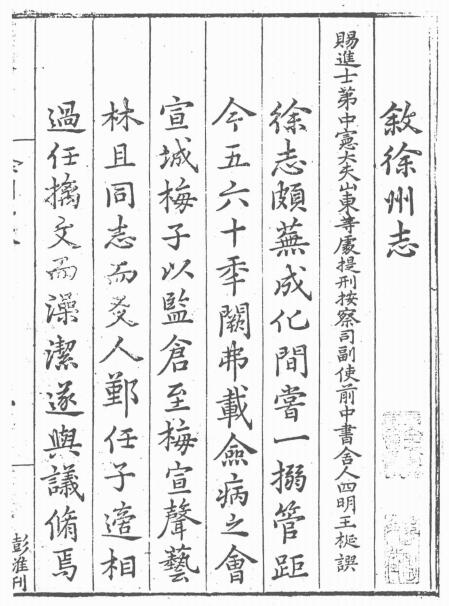 敘徐州志
賜進士第中憲大夫山東等處提刑按察司副使前中書舍人四明王梴譔
徐志頗蕪成化間嘗一搦管距
今五六十秊闕弗載僉病之會
宣城梅子以監倉至梅宣聲藝
林且同志而爻人鄞任子適相
過任摛文而澡潔遂與議脩焉
彭淮刊